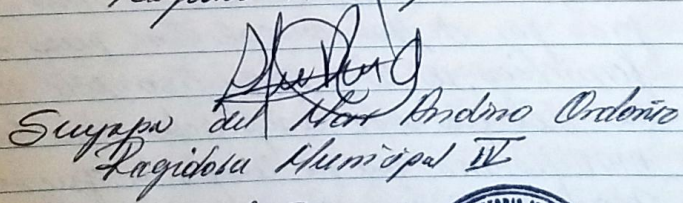 Suyapa del Mar Andino Ordoñez
Regidora Municipal IV